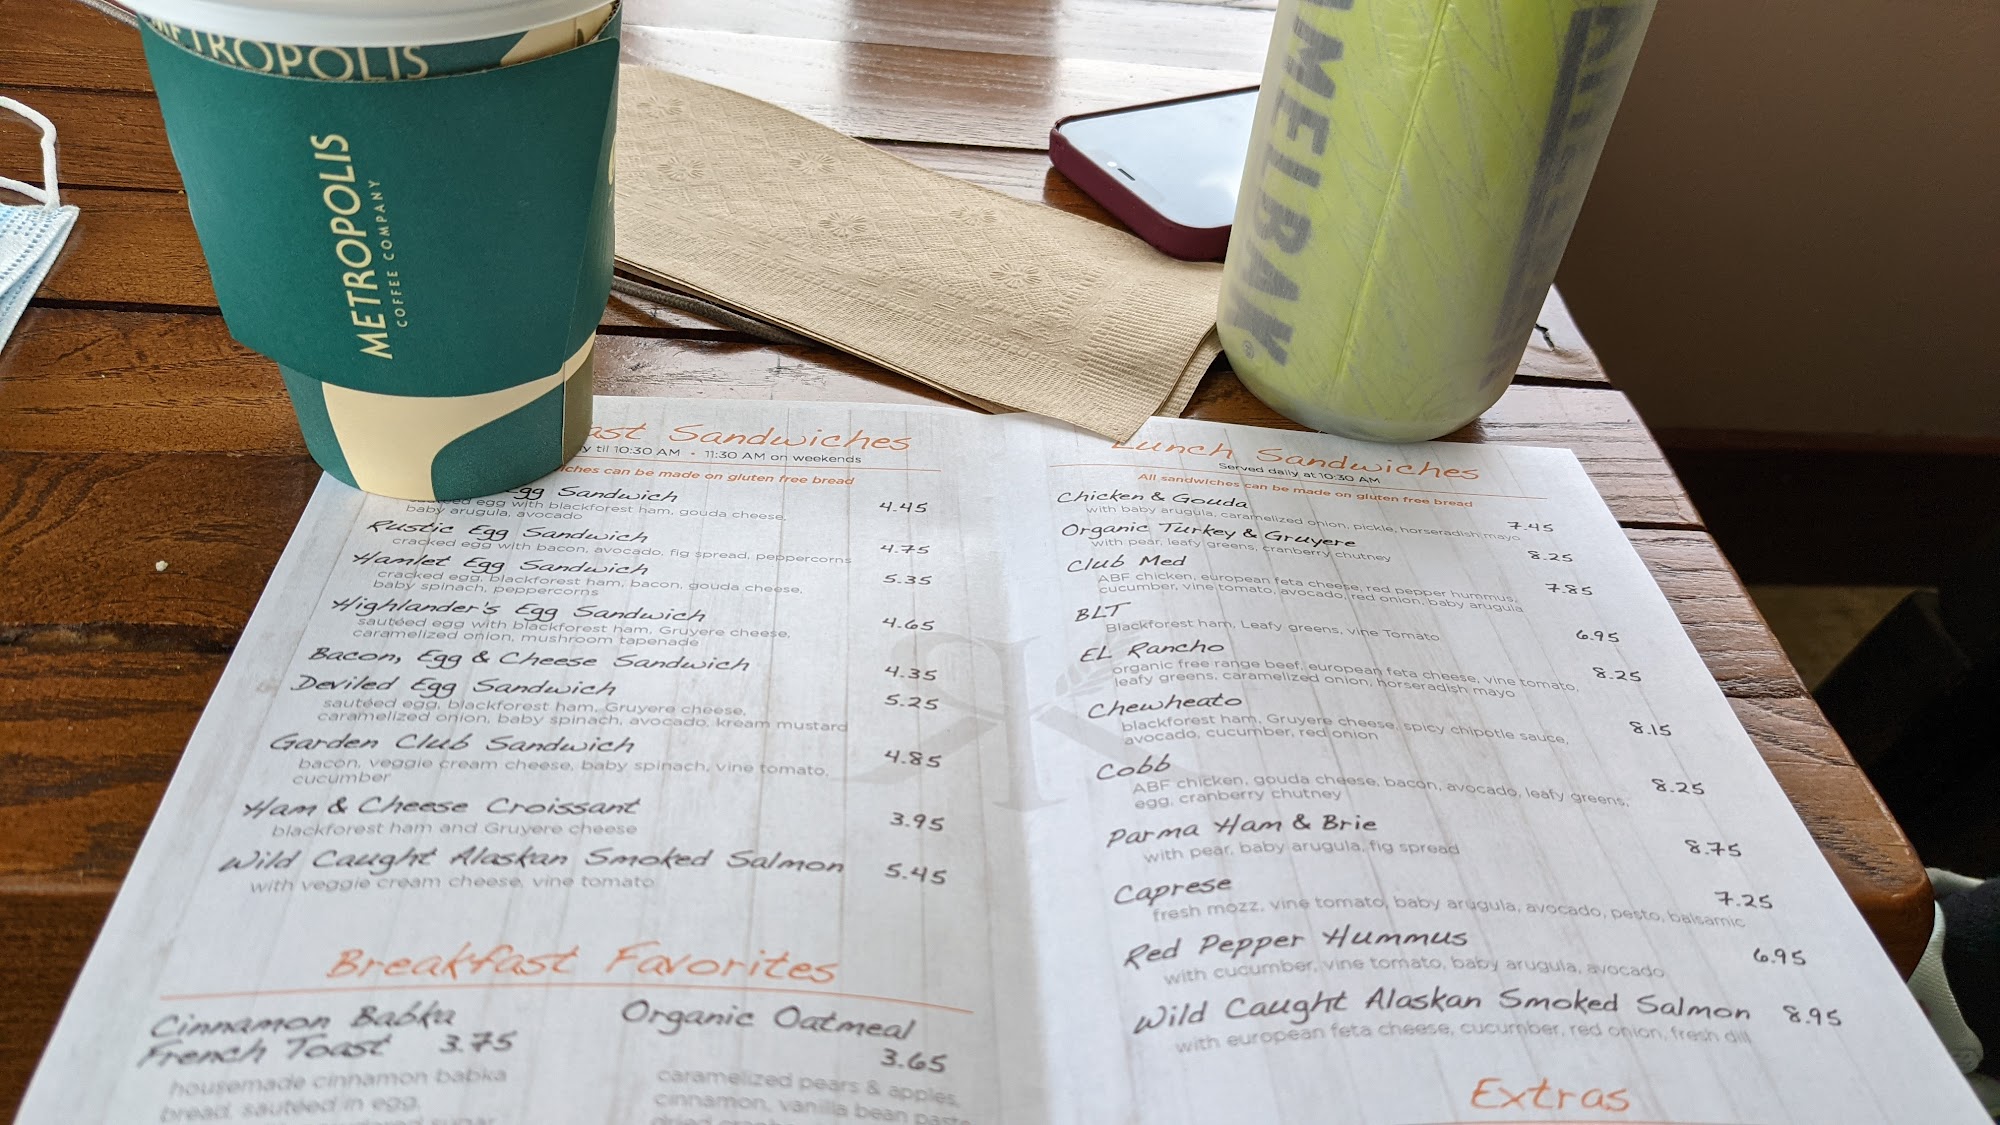 METROPOLIS
METROPOLIS
COFFEE COMPANY
AMELBAK
Sandwiches
til 10:30 AM • 11:30 AM on weekends
can be made on gluten free bread
Egg Sandwich 4.45
egg with blackforest ham, gouda cheese,
baby arugula, avocado
Rustic Egg Sandwich 4.75
cracked egg with bacon, avocado, fig spread, peppercorns
Hamlet Egg Sandwich 5.35
cracked egg, blackforest ham, bacon, gouda cheese,
baby spinach, peppercorns
Highlander's Egg Sandwich 4.65
sautéed egg with blackforest ham, Gruyere cheese,
caramelized onion, mushroom tapenade
Bacon, Egg & Cheese Sandwich 4.35
Deviled Egg Sandwich 5.25
sautéed egg, blackforest ham, Gruyere cheese,
caramelized onion, baby spinach, avocado, kream mustard
Garden Club Sandwich 4.85
bacon, veggie cream cheese, baby spinach, vine tomato,
cucumber
Ham & Cheese Croissant 3.95
blackforest ham and Gruyere cheese
Wild Caught Alaskan Smoked Salmon 5.45
with veggie cream cheese, vine tomato
Breakfast Favorites
Cinnamon Babka
French Toast 3.75
housemade cinnamon babka
bread, sautéed in egg,
Organic Oatmeal
3.65
caramelized pears & apples,
cinnamon, vanilla bean paste
Lunch Sandwiches
Served daily at 10:30 AM
All sandwiches can be made on gluten free bread
Chicken & Gouda 7.45
with baby arugula, caramelized onion, pickle, horseradish mayo
Organic Turkey & Gruyere 8.25
with pear, leafy greens, cranberry chutney
Club Med 7.85
ABF chicken, european feta cheese, red pepper hummus,
cucumber, vine tomato, avocado, red onion, baby arugula
BLT 6.95
Blackforest ham, Leafy greens, vine Tomato
EL Rancho 8.25
organic free range beef, european feta cheese, vine tomato,
leafy greens, caramelized onion, horseradish mayo
Chewheato 8.15
blackforest ham, Gruyere cheese, spicy chipotle sauce,
avocado, cucumber, red onion
Cobb 8.25
ABF chicken, gouda cheese, bacon, avocado, leafy greens,
egg, cranberry chutney
Parma Ham & Brie 8.75
with pear, baby arugula, fig spread
Caprese 7.25
fresh mozz, vine tomato, baby arugula, avocado, pesto, balsamic
Red Pepper Hummus 6.95
with cucumber, vine tomato, baby arugula, avocado
Wild Caught Alaskan Smoked Salmon 8.95
with european feta cheese, cucumber, red onion, fresh dill
Extras